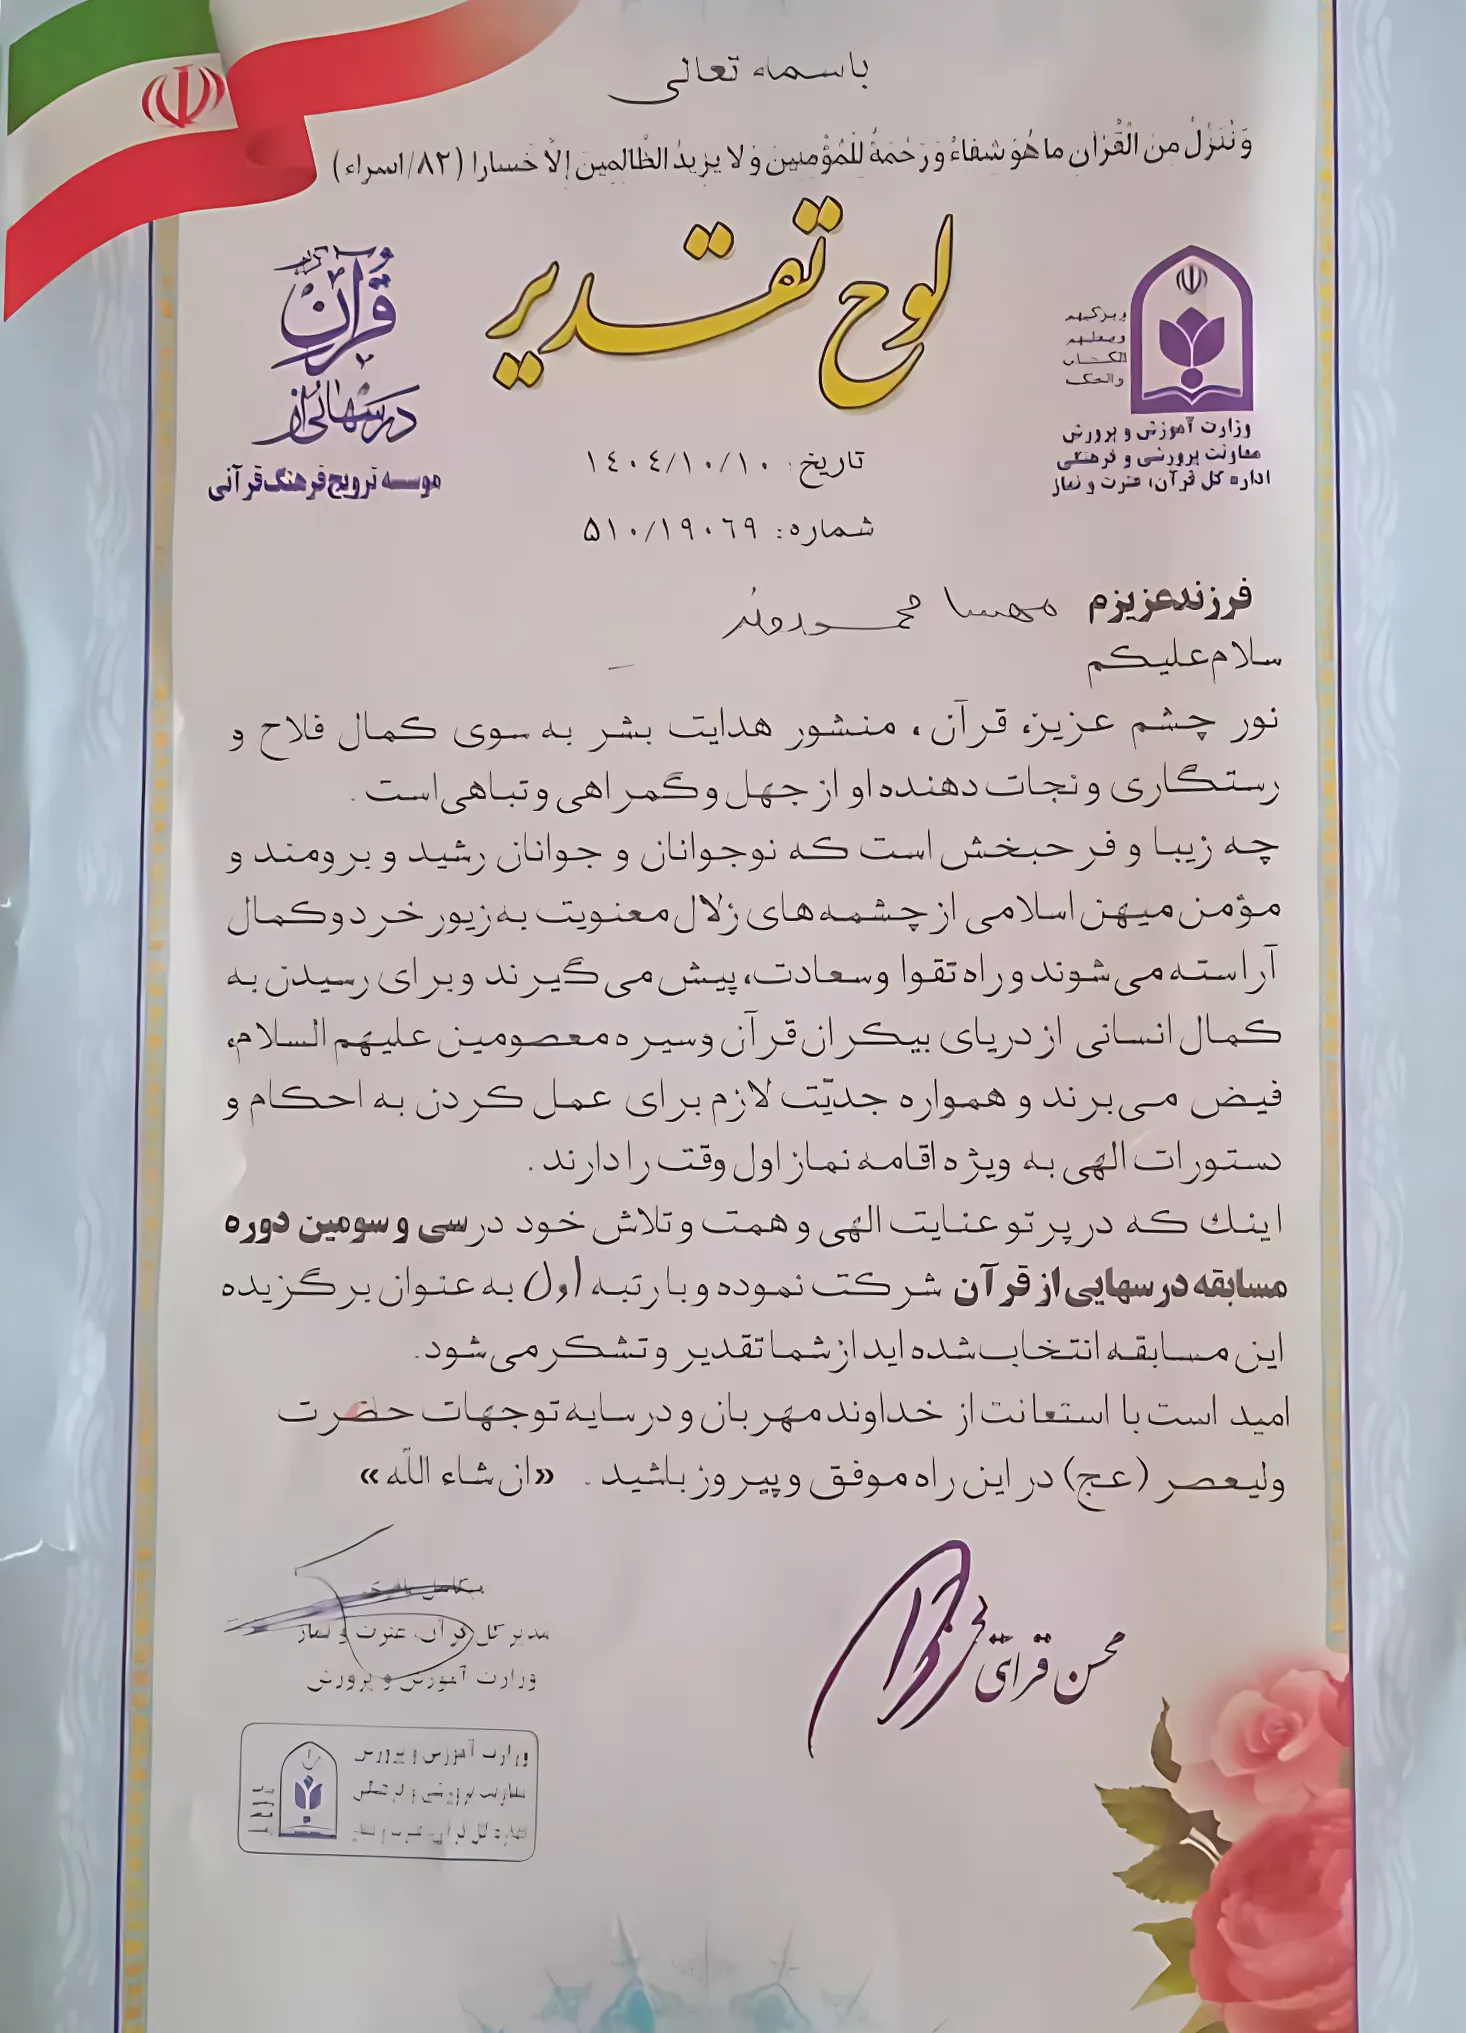 باسمه تعالی
وَنُنَزِّلُ مِنَ الْقُرْآنِ ما هُوَ شِفاءٌ وَ رَحْمَةٌ لِلْمُؤْمِنینَ وَ لا یَزیدُ الظّالِمینَ إِلّا خَسارا (۸۲/اسراء)
لوح تقدیر
ویزکیهم
ویعلمهم
الکتاب
والحکمة
وزارت آموزش و پرورش
معاونت پرورشی و فرهنگی
اداره کل قرآن، عترت و نماز
درسهائی از قرآن
موسسه ترویج فرهنگ قرآنی
تاریخ: ۱٤۰٤/۱۰/۱۰
شماره: ۵۱۰/۱۹۰٦۹
فرزندعزیزم مهسا محمودوند
سلام علیکم
نور چشم عزیز، قرآن ، منشور هدایت بشر به سوی کمال فلاح و
رستگاری و نجات دهنده او از جهل و گمراهی و تباهی است .
چه زیبا و فرحبخش است که نوجوانان و جوانان رشید و برومند و
مؤمن میهن اسلامی از چشمه های زلال معنویت به زیور خرد و کمال
آراسته می شوند و راه تقوا و سعادت، پیش می گیرند و برای رسیدن به
کمال انسانی از دریای بیکران قرآن و سیره معصومین علیهم السلام،
فیض می برند و همواره جدیّت لازم برای عمل کردن به احکام و
دستورات الهی به ویژه اقامه نماز اول وقت را دارند .
اینك که در پرتو عنایت الهی و همت و تلاش خود در سی و سومین دوره
مسابقه درسهایی از قرآن شرکت نموده و با رتبه اول به عنوان برگزیده
این مسابقه انتخاب شده اید از شما تقدیر و تشکر می شود.
امید است با استعانت از خداوند مهربان و در سایه توجهات حضرت
ولیعصر (عج) در این راه موفق و پیروز باشید . «ان شاء الله»
محسن قرائتی
مدیر کل قرآن، عترت و نماز
وزارت آموزش و پرورش
وزارت آموزش و پرورش
معاونت پرورشی و فرهنگی
اداره کل قرآن، عترت و نماز